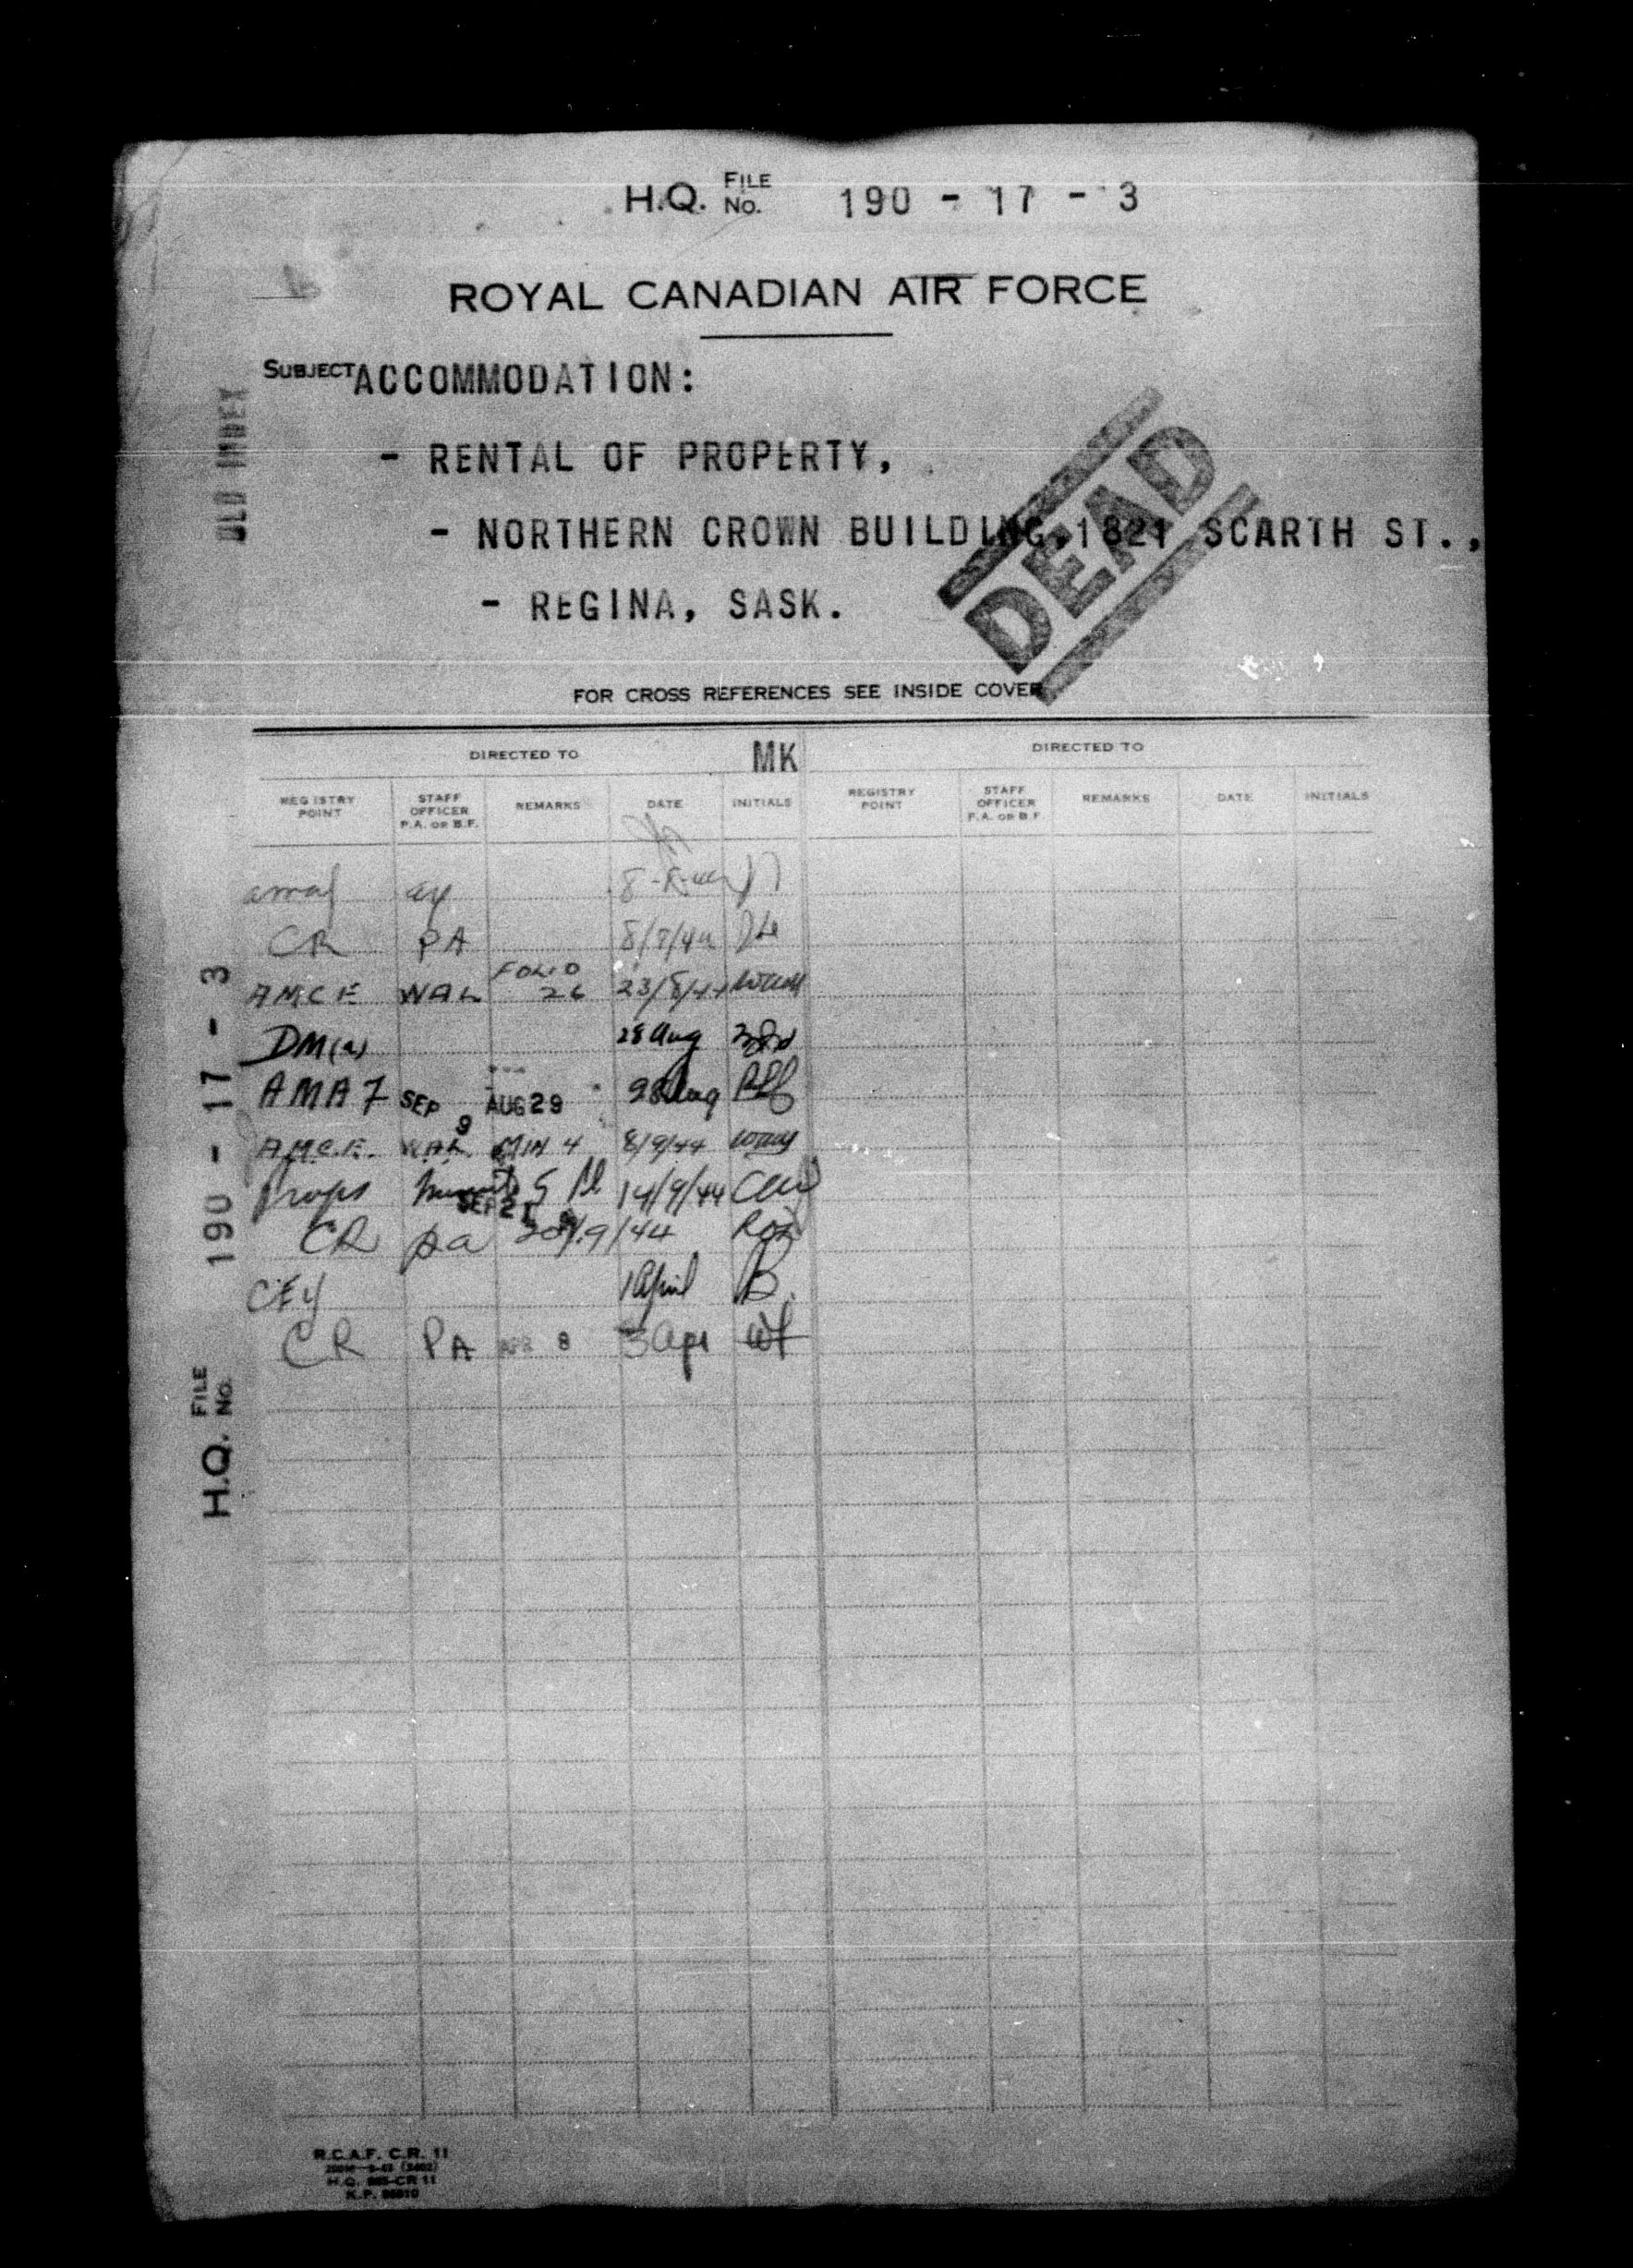 H.Q. FILE NO. 190 - 17 - 3
ROYAL CANADIAN AIR FORCE
SUBJECT ACCOMMODATION:
- RENTAL OF PROPERTY,
- NORTHERN CROWN BUILDING, 1821 SCARTH ST.,
- REGINA, SASK.
DEAD
OLD INDEX
FOR CROSS REFERENCES SEE INSIDE COVER
DIRECTED TO MK DIRECTED TO
REGISTRY POINT STAFF OFFICER P.A. OR B.F. REMARKS DATE INITIALS REGISTRY POINT STAFF OFFICER P.A. OR B.F. REMARKS DATE INITIALS
CR PA
AMCE WAL FOLIO 26 23/8/44
DM(a) 28 Aug
AMA7 SEP 9 AUG 29 28 Aug
A.M.C.E. WAL MIN 4 8/9/44
Props 5 SEP 21 14/9/44
CR pa 20/9/44
1 April B.
CR PA APR 8 3 Apr
H.Q. FILE NO. 190 - 17 - 3
R.C.A.F. C.R. 11
H.Q. 885-CR 11